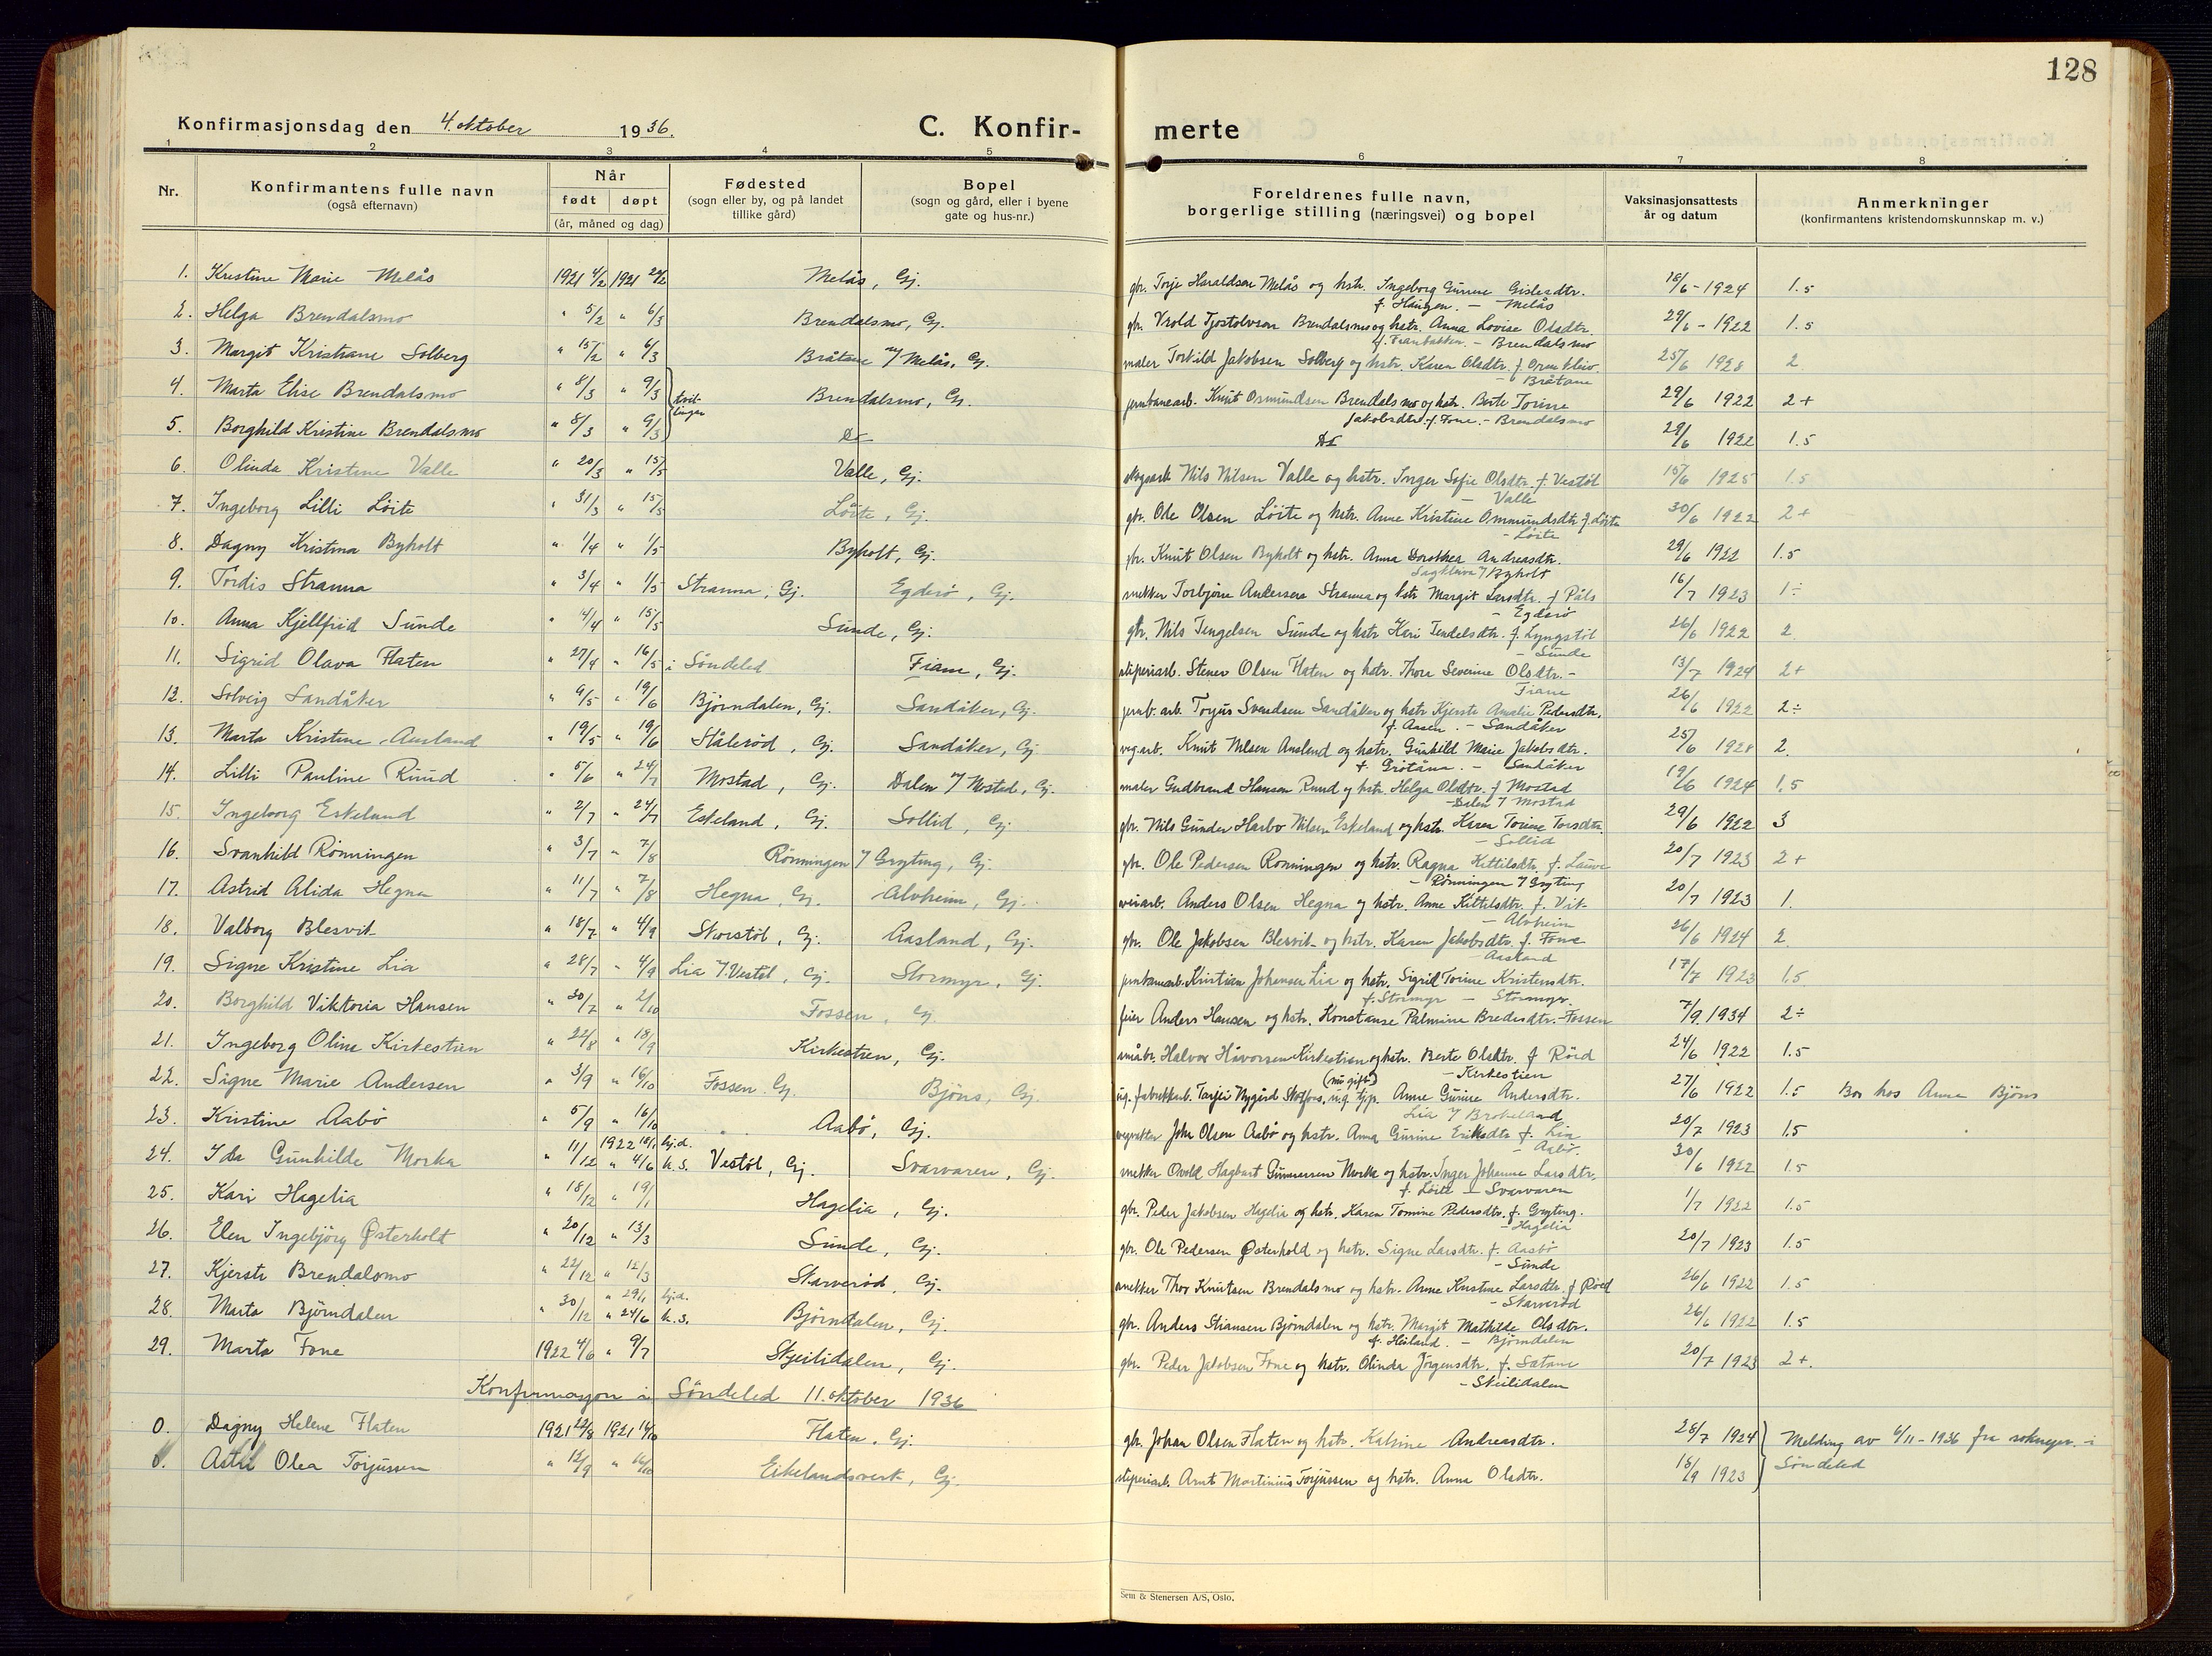 128
Konfirmasjonsdag den 4. oktober 1936. C. Konfir- merte
1 2 3 4 5 6 7 8
Nr. Konfirmantens fulle navn (også efternavn) Når født døpt (år, måned og dag) Fødested (sogn eller by, og på landet tillike gård) Bopel (sogn og gård, eller i byene gate og hus-nr.) Foreldrenes fulle navn, borgerlige stilling (næringsvei) og bopel Vaksinasjonsattests år og datum Anmerkninger (konfirmantens kristendomskunnskap m. v.)
1. Kristine Marie Melås 1921 4/2 1921 Melås, Gj. gbr. Torje Haraldsen Melås og hstr. Ingeborg Gurine Gislesdtr. 18/6 - 1924 1.5
f. Haugen. - Melås
2. Helga Brendalsmo " 5/2 " 6/3 Brendalsmo, Gj. gbr. Vrold Tjostolvsen Brendalsmo og hstr. Anna Lovise Olsdtr. 29/6 - 1922 1.5
- Brendalsmo
3. Margit Kristiane Solberg " 15/2 " 6/3 Bråtane 7 Melås, Gj. maler Torkild Jakobsen Solberg og hstr. Karen Olsdtr. f. 25/6 1928 2
- Bråtane
4. Marta Elise Brendalsmo " 8/3 " 9/3 tvillinger Brendalsmo, Gj. jernbanearb. Knut Osmundsen Brendalsmo og hstr. Berte Torine 29/6 1922 2+
Jakobsdtr. f. Fone. - Brendalsmo
5. Borghild Kristine Brendalsmo " 8/3 " 9/3 Do Do 29/6 1922 1.5
6. Olinda Kristine Valle " 20/3 " 15/5 Valle, Gj. skogsarb. Nils Nilsen Valle og hstr. Inger Sofie Olsdtr. f. Vestøl 15/6 1925 1.5
- Valle
7. Ingeborg Lilli Löite " 31/3 " 15/5 Löite, Gj. gbr. Ole Olsen Löite og hstr. Anne Kristine Ommundsdtr. f. Löite 30/6 1922 2+
- Löite
8. Dagny Kristina Byholt " 1/4 " 1/5 Byholt, Gj. gbr. Knut Olsen Byholt og hstr. Anna Dorothea Andreasdtr. 29/6 1922 1.5
7 Byholt
9. Tordis Stranna " 3/4 " 1/5 Stranna, Gj. Egdesö, Gj. snekker Torbjörn Andersen Stranna og hstr. Margit Larsdtr. f. Påls 16/7 1923 1÷
- Egdesö
10. Anna Kjellfrid Sunde " 14/4 " 15/5 Sunde, Gj. gbr. Nils Tengelsen Sunde og hstr. Kari Tendelsdtr. f. Lyngstöl 26/6 1922 2.
- Sunde
11. Sigrid Olava Flaten " 27/4 " 16/5 i Söndeled Fiane, Gj. sliperiarb. Stener Olsen Flaten og hstr. Thora Severine Olsdtr. - 13/7 1924 2+
Fiane
12. Solveig Sandåker " 9/5 " 19/6 Bjørndalen, Gj. Sandåker, Gj. jernb. arb. Torjus Svendsen Sandåker og hstr. Kjersti Amalie Pedersdtr. 26/6 1922 2÷
f. Aasen. - Sandåker
13. Marta Kristine Ausland " 19/5 " 19/6 Stålerød, Gj. Sandåker, Gj. veg.arb. Knut Nilsen Ausland og hstr. Gunhild Marie Jakobsdtr. 25/6 1928 2.
f. Grötåna. - Sandåker
14. Lilli Pauline Ruud " 5/6 " 24/7 Mostad, Gj. Dalen 7 Mostad, Gj. maler Gudbrand Hansen Ruud og hstr. Helga Olsdtr. f. Mostad 19/6 1924 1.5
- Dalen 7 Mostad
15. Ingeborg Eskeland " 2/7 " 24/7 Eskeland, Gj. Sollid, Gj. gbr. Nils Gunder Harbo Nilsen Eskeland og hstr. Karen Torine Torsdtr. 29/6 1922 3
- Sollid
16. Svanhild Rönningen " 3/7 " 7/8 Rönningen 7 Gryting, Gj. gbr. Ole Pedersen Rønningen og hstr. Ragna Kittilsdtr. f. 20/7 1923 2+
- Rønningen 7 Gryting
17. Astrid Alida Hegna " 11/7 " 7/8 Hegna, Gj. Alvheim, Gj. veiarb. Anders Olsen Hegna og hstr. Anne Kittilsdtr. f. Vik - 20/7 1923 1.
- Alvheim
18. Valborg Blesvik " 18/7 " 4/9 Skorstöl, Gj. Aasland, Gj. gbr. Ole Jakobsen Blesvik og hstr. Karen Jakobsdtr. f. Fone 26/6 1924 2.
- Aasland
19. Signe Kristine Lia " 28/7 " 4/9 Lia 7 Vestöl, Gj. Stormyr, Gj. jernbanearb. Kristian Johansen Lia og hstr. Sigrid Torine Kristensdtr. 17/7 1923 1.5
f. Stormyr - Stormyr.
20. Borghild Viktoria Hansen " 30/7 " 2/10 Fossen, Gj. feier Anders Hansen og hstr. Konstanse Palmine Bredesdtr. - Fossen 7/9. 1934 2÷
21. Ingeborg Oline Kirkestien " 22/8 " 18/9 Kirkestien, Gj. småbr. Halvor Håvorsen Kirkestien og hstr. Berte Olsdtr. f. Röed 24/6 1922 1.5
- Kirkestien
22. Signe Marie Andersen " 3/9 " 16/10 Fossen, Gj. Bjöns, Gj. ug. fabrikkarb. Tarjei Nygård Skotfos, ug. tjp. (nu gift) Anne Gurine Andersdtr. 27/6 1922 1.5 Bor hos Anne Bjöns
Lia 7 Brokeland
23. Kristine Aabö " 5/9 " 16/10 Aabö, Gj. vegvokter John Olsen Aabö og hstr. Anna Gurine Eriksdtr. f. Lia 20/7 1923 1.5
- Aabö.
24. Ida Gunhilde Morka " 11/12 1922 18/1 hj.d. " 4/6 k.s. Vestöl, Gj. Svarvaren, Gj. snekker Orvold Hagbart Gunnersen Morka og hstr. Inger Johanne Larsdtr. 30/6 1922 1.5
f. Löite - Svarvaren
25. Kari Hagelia " 18/12 " 19/1 Hagelia, Gj. gbr. Peder Jakobsen Hagelia og hstr. Karen Tomine Pedersdtr. f. Gryting. 1/7 1922 1.5
- Hagelia
26. Elen Ingebjörg Østerholt " 20/12 " 13/3 Sunde, Gj. gbr. Ole Pedersen Østerhold og hstr. Signe Larsdtr. f. Aasbö 20/7 1923 1.5
- Sunde
27. Kjersti Brendalsmo " 22/12 " 12/3 Skarveröd, Gj. snekker Thor Knutsen Brendalsmo og hstr. Anne Kristine Larsdtr. f. Röed 26/6 1922 1.5
- Skarveröd
28. Marta Björndalen " 30/12 " 29/1 hj.d. " 24/6 k.s. Björndalen, Gj. gbr. Anders Stiansen Björndalen og hstr. Margit Mathilde Olsdtr. 26/6 1922 1.5
f. Heiland. - Björndalen
29. Marta Fone 1922 4/6 " 9/7 Skjeilidalen, Gj. gbr. Peder Jakobsen Fone og hstr. Olinda Jörgensdtr. f. Satane 20/7 1923 2+.
- Skeilidalen
Konfirmasjon i Söndeled 11. oktober 1936
0. Dagny Helene Flaten 1921 22/8 1921 Flaten, Gj. gbr. Johan Olsen Flaten og hstr. Katrine Andreasdtr. 28/7 1924 Melding av 6/11 - 1936 fra sokneprr. i
0. Astri Olea Torjussen " 12/9 " 16/10 Eikelandsverk, Gj. sliperiarb. Arnt Martinius Torjussen og hstr. Anna Olsdtr. 18/9 1923 Söndeled
Sem & Stenersen A/S, Oslo.